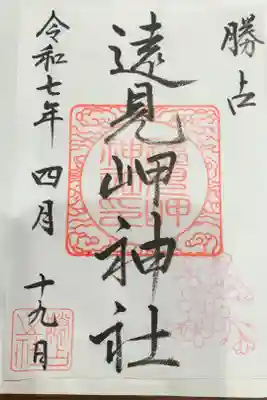 勝占
遠見岬神社
令和七年 四月 十九日